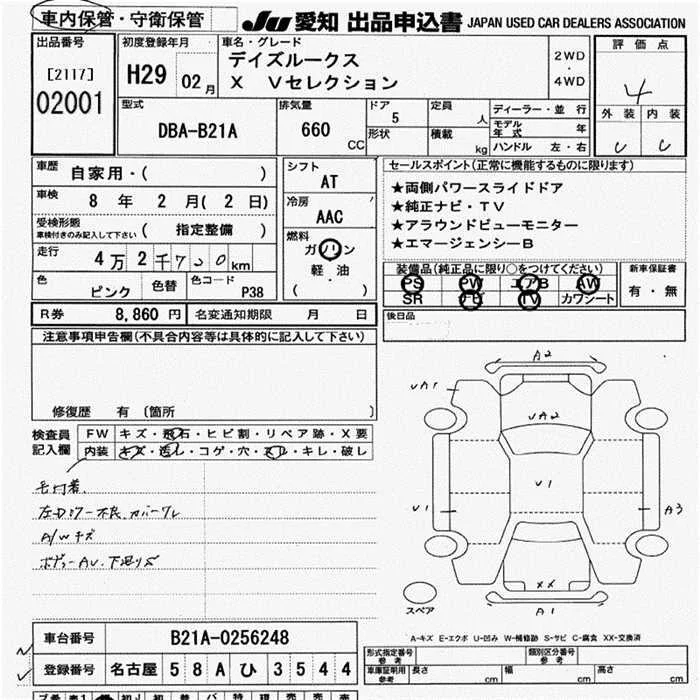 車内保管・守衛保管
JU 愛知 出品申込書 JAPAN USED CAR DEALERS ASSOCIATION
出品番号
[2117]
02001
初度登録年月
H29 02月
車名・グレード
デイズルークス
X Vセレクション
2WD
・
4WD
評価点
4
外装 内装
型式
DBA-B21A
排気量
660
CC
ドア
5
形状
定員
人
積載
kg
ディーラー・並行
モデル年式 年
ハンドル 左・右
車歴 自家用・( )
車検 8 年 2 月( 2 日)
受検形態
車検付きのみ記入して下さい ( 指定整備 )
走行 4万2千730km
色 ピンク 色替 色コード P38
シフト
AT
冷房
AAC
燃料
ガソリン
軽・油
( ・ )
セールスポイント(正常に機能するものに限ります)
★両側パワースライドドア
★純正ナビ・TV
★アラウンドビューモニター
★エマージェンシーB
装備品(純正品に限り○をつけてください)
PS PW エアB AW
SR ナビ TV カワシート
新車保証書
有・無
R券 8,860 円 名変通知期限 月 日
後日品
注意事項申告欄(不具合内容等は具体的に記入して下さい)
修復歴 有 〔箇所 〕
検査員
記入欄
FW キズ・飛石・ヒビ割・リペア跡・X要
内装 キズ・汚し・コゲ・穴・ヌレ・キレ・破レ
A/Wキズ
A2
UA1
UA2
U1
U1
A3
XX
A1
スペア
A-キズ E-エクボ U-凹み W-補修跡 S-サビ C-腐食 XX-交換済
車台番号 B21A-0256248
登録番号 名古屋 58A ひ 3544
形式指定番号
参考
類別区分番号
参考
車庫証明用
参考
長さ cm 幅 cm 高さ cm